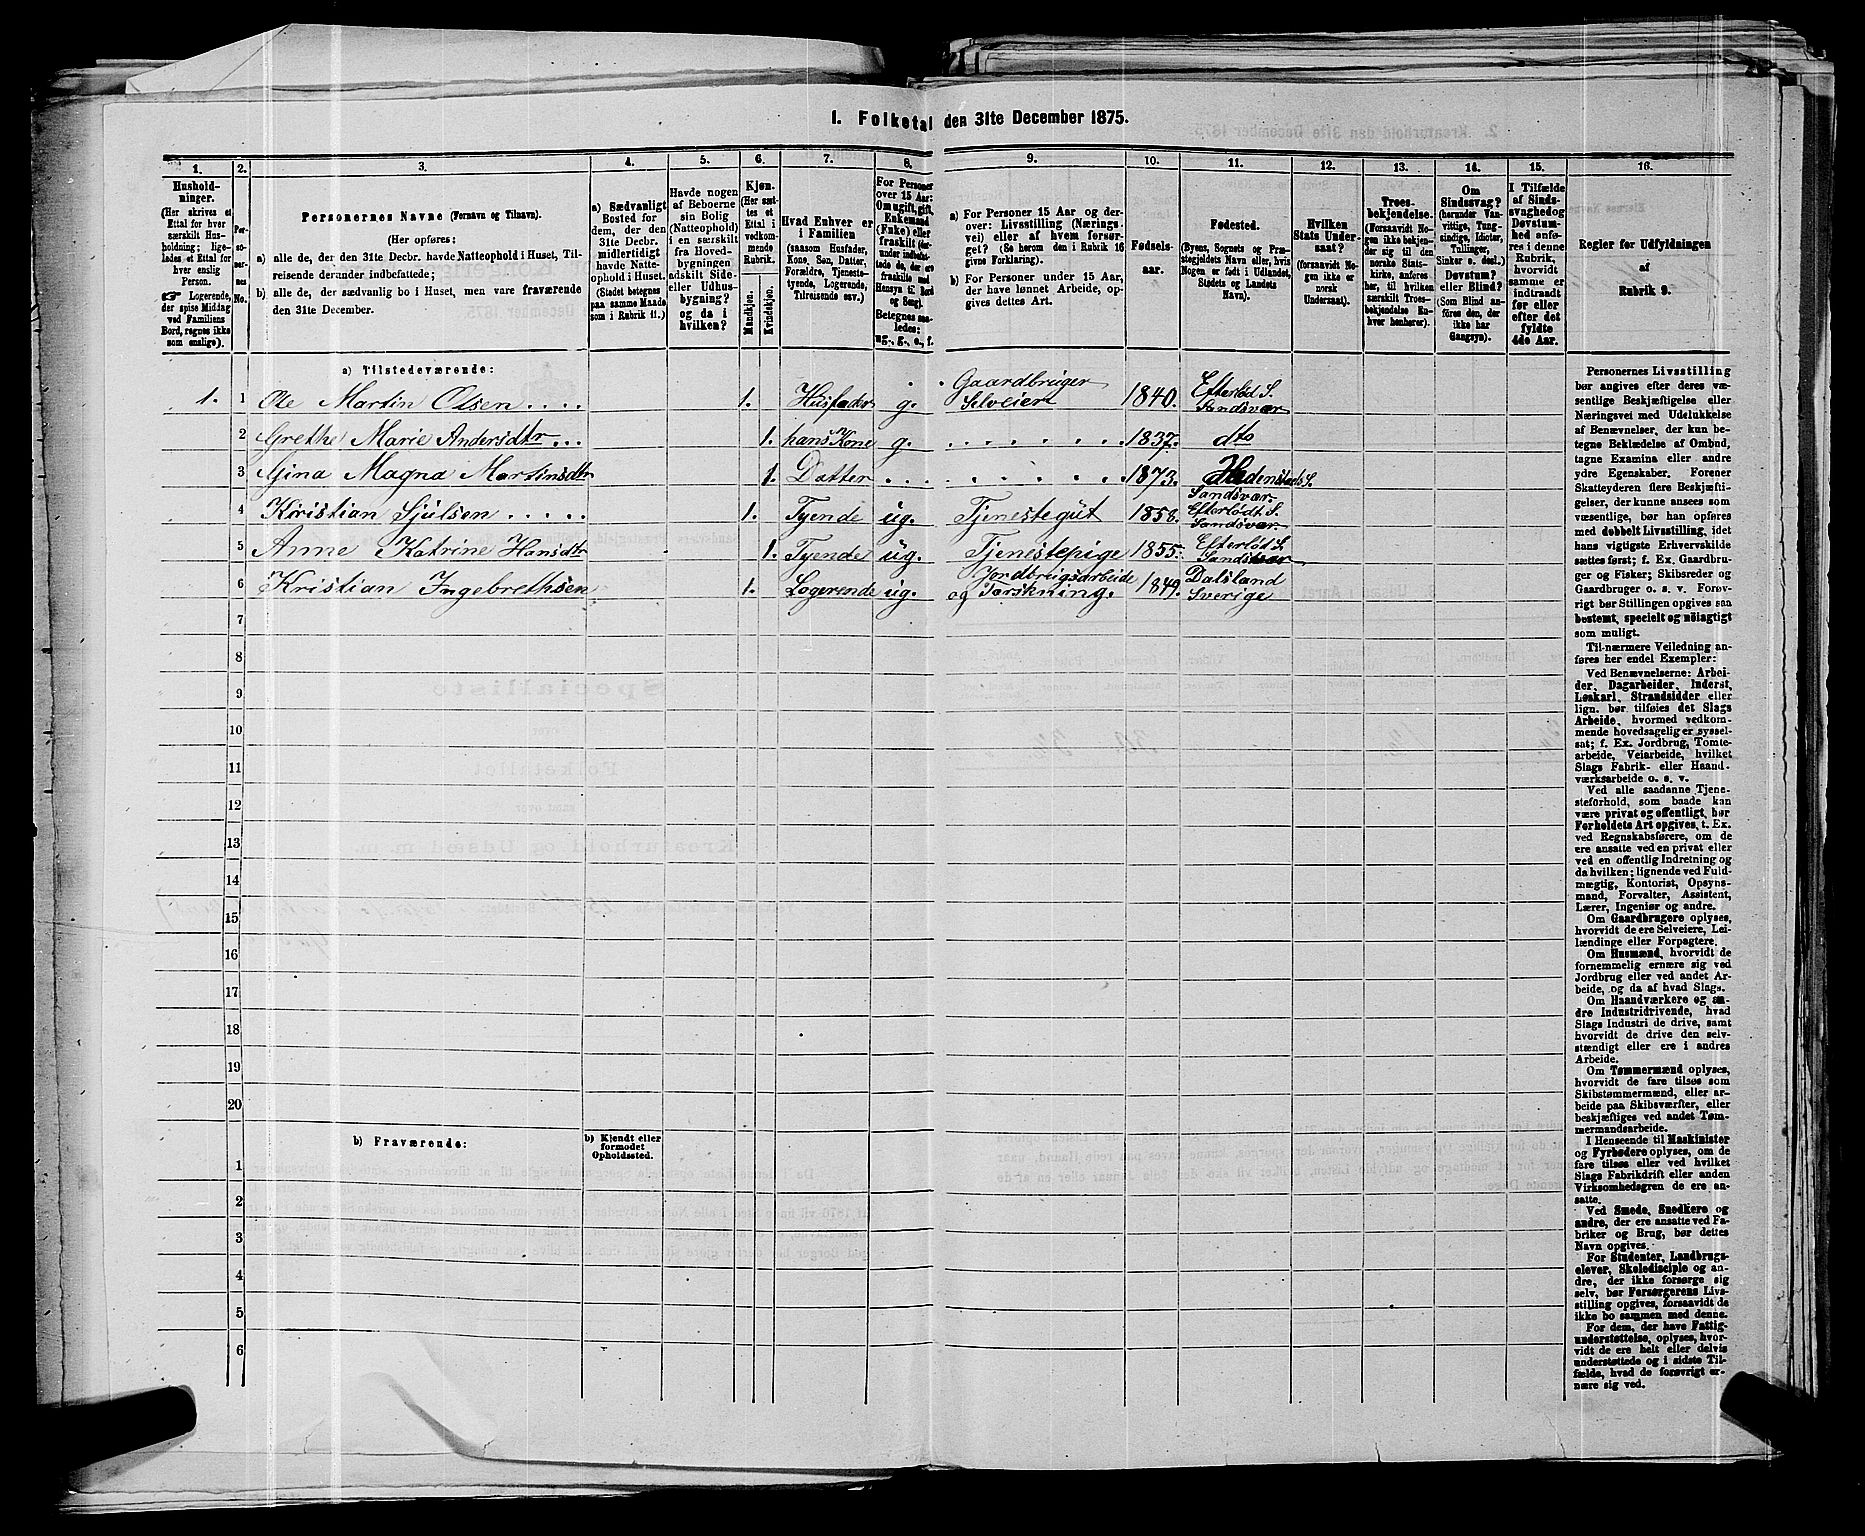 1. Folketal den 31te December 1875.
1.
Hushold-
ninger.
(Her skrives et
Ettal for hver
særskilt Hus-
holdning; lige-
ledes et Ettal
for hver
enslig
Person.
Logerende,
der spise Middag
ved Familiens
Bord, regnes ikke
som enslige).
2.
Per-
so-
ner-
nes
No.
3.
Personernes Navne (Fornavn og Tilnavn).
(Her opføres:
a) alle de, der den 31te Decbr. havde Natteophold i Huset, Til-
reisende derunder indbefattede;
b) alle de, der sædvanlig bo i Huset, men vare fraværende
den 31te December.
4.
a) Sædvanligt
Bosted for
dem, der den
31te Decbr.
midlertidigt
havde Natte-
ophold i Huset.
(Stedet betegnes
paa samme Maade
som i Rubrik 11.)
5.
Havde nogen
af Beboerne
sin Bolig
(Natteophold)
i en særskilt
fra Hoved-
bygningen
adskilt Side-
eller Udhus-
bygning?
og da i
hvilken?
6.
Kjøn.
(Her sæt-
tes et
Ettal i
vedkom-
mende
Rubrik.
Mandkjøn.
Kvindekjøn.
7.
Hvad Enhver er
i Familien
(saasom Husfader,
Kone, Søn, Datter,
Forældre, Tjeneste-
tyende, Logerende,
Tilreisende osv.)
8.
For Personer
over 15 Aar:
Om ugift, gift,
Enkemand
(Enke) eller
fraskilt
Betegnes saa-
ledes:
ug., g., e., f.
9.
a) For Personer 15 Aar og der-
over: Livsstilling (Nærings-
vei) eller af hvem forsør-
get? (Se herom den i Rubrik 16
givne Forklaring).
b) For Personer under 15 Aar,
der have lønnet Arbeide, op-
gives dettes Art.
10.
Fødsels-
aar.
11.
Fødested.
(Byens, Sognets og Præ-
stegjeldets Navn eller, hvis
Nogen er født i Udlandet,
Stedets og Landets
Navn).
12.
Hvilken
Stats Under-
saat?
(forsaavidt No-
gen ikke er
norsk
Undersaat).
13.
Troes-
bekjendelse.
(Forsaavidt No-
gen ikke bekjen-
der sig til den
norske Stats-
kirke, anføres
her, til hvilken
særskilt Troes-
bekjendelse En-
hver henhører).
14.
Om
Sindssvag?
(herunder Van-
vittige, Tung-
sindige, Idioter,
Tullinger,
Sinker o. desl.)
Døvstum?
eller Blind?
(Som Blind an-
føres den, der
ikke har
Gangsyn).
15.
I Tilfælde
af Sinds-
svaghed og
Døvstum-
hed anfø-
res i denne
Rubrik,
hvorvidt
samme er
indtraadt
før eller
efter det
fyldte
4de Aar.
16.
Regler for Udfyldningen
af
Rubrik 9.
a) Tilstedeværende:
1. 1 Ole Martin Olsen .... 1. Husfader g. Gaardbruger Selveier 1840. Efterlød S. Sandsvær
2 Grethe Marie Andersdtr ... 1. hans Kone g. . . . . . . 1837. dto
3 Gina Magna Martinsdtr 1. Datter ... . . . . . . 1873. Hedenstads S. Sandsvær
4 Kristian Sjulsen ..... 1. Tyende ug. Tjenestegut 1858. Efterlødt S. Sandsvær
5 Anne Katrine Hansdtr 1. Tyende ug. Tjenestepige 1855. Efterløt S. Sandsvær
6 Kristian Ingebrethsen 1. Logerende ug. Jordbrugsarbeide og Torskning. 1849. Dalsland Sverige
7
8
9
10
11
12
13
14
15
16
17
18
19
20
b) Fraværende:
b) Kjendt eller
formodet
Opholdssted.
1
2
3
4
5
6
Personernes Livsstilling
bør angives efter deres væ-
sentlige Beskjæftigelse eller
Næringsvei med Udelukkelse
af Benævnelser, der kun be-
tegne Beklædelse af Ombud,
tagne Examina eller andre
ydre Egenskaber. Forener
Skatteyderen flere Beskjæfti-
gelser, der kunne ansees som
væsentlige, bør han opføres
med dobbelt Livsstilling, idet
hans vigtigste Erhvervskilde
sættes først; f. Ex. Gaardbru-
ger og Fisker; Skibsreder og
Gaardbruger o. s. v. Forøv-
rigt bør Stillingen opgives saa
bestemt, specielt og nöiagtigt
som muligt.
Til nærmere Veiledning an-
føres her endel Exempler:
Ved Benævnelserne: Arbei-
der, Dagarbeider, Inderst,
Løskarl, Strandsidder eller
lign. bør tilføies det Slags
Arbeide, hvormed vedkom-
mende hovedsagelig er syssel-
sat; f. Ex. Jordbrug, Tomte-
arbeide, Veiarbeide, hvilket
Slags Fabrik- eller Haand-
værksarbeide o. s. v.
Ved alle saadanne Tjene-
steforhold, som baade kan
være privat og offentligt, bør
Forholdets Art opgives, t. Ex.
ved Regnskabsførere, om de
ere ansatte ved en privat eller
ved en offentlig Indretning og
da hvilken; lignende ved Fuld-
mægtig, Kontorist, Opsyns-
mand, Forvalter, Assistent,
Lærer, Ingeniør og andre.
Om Gaardbrugere oplyses,
hvorvidt de ere Selveiere, Lei-
lændinge eller Forpagtere.
Om Husmænd, hvorvidt de
fornemmelig ernære sig ved
Jordbrug eller ved andet Ar-
beide, og da af hvad Slags.
Om Haandværkere og an-
dre Industridrivende, hvad
Slags Industri de drive, samt
hvorvidt de drive den selv-
stændigt eller ere i andres
Arbeide.
Om Tømmermænd oplyses,
hvorvidt de fare tilsøs som
Skibstømmermænd, eller ar-
beide paa Skibsværfter, eller
beskjæftiges ved andet Tøm-
mermandsarbeide.
I Henseende til Maskinister
og Fyrbødere oplyses, om de
fare tilsøs eller ved hvilket
Slags Fabrikdrift eller anden
Virksomhedsgren de ere an-
satte.
Ved Smede, Snedkere og
andre, der ere ansatte ved Fa-
briker og Brug, bør dettes
Navn opgives.
For Studenter, Landbrugs-
elever, Skoledisciple og an-
dre, der ikke forsørge sig
selv, bør Forsørgerens Livs-
stilling opgives, forsaavidt de
ikke bo sammen med denne.
For dem, der have Fattig-
understøttelse, oplyses, hvor-
vidt de ere helt eller delvis
understøttede og i sidste Til-
fælde, hvad de forøvrigt er-
nære sig ved.